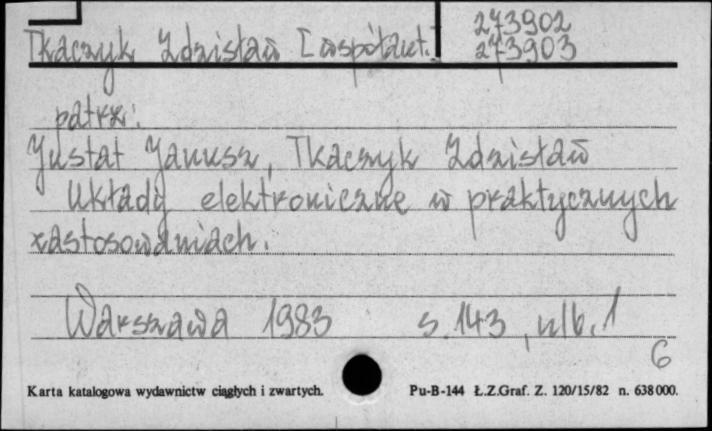 Tkaczyk Zdzisław [współaut.] 273902
273903
patrz:
Justat Janusz, Tkaczyk Zdzisław
Układy elektroniczne w praktycznych
zastosowaniach.
Warszawa 1983 s. 143, nlb. 1
6
Karta katalogowa wydawnictw ciągłych i zwartych. Pu-B-144 Ł.Z.Graf. Z. 120/15/82 n. 638000.